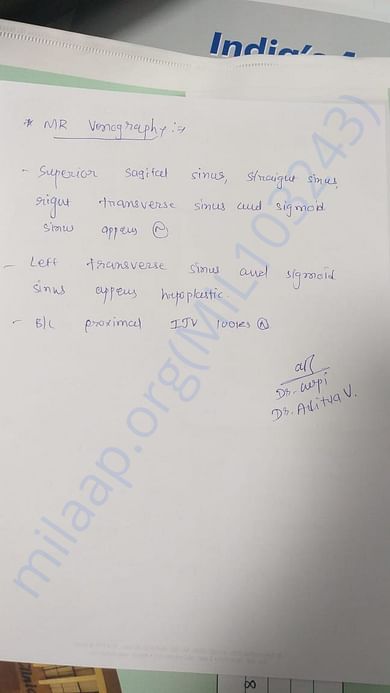 India's
* MR Venography :→
- Superior sagital sinus, straigut sinus,
rigut transverse sinus and sigmod
sinus appeas Ⓝ
- Left transverse sinus and sigmoid
sinus appeas hypoplastic.
- B/L proximal IJV looks Ⓝ
Dr. Arpi
Dr. Aditva V.
milaap.org(MIL103243)
8